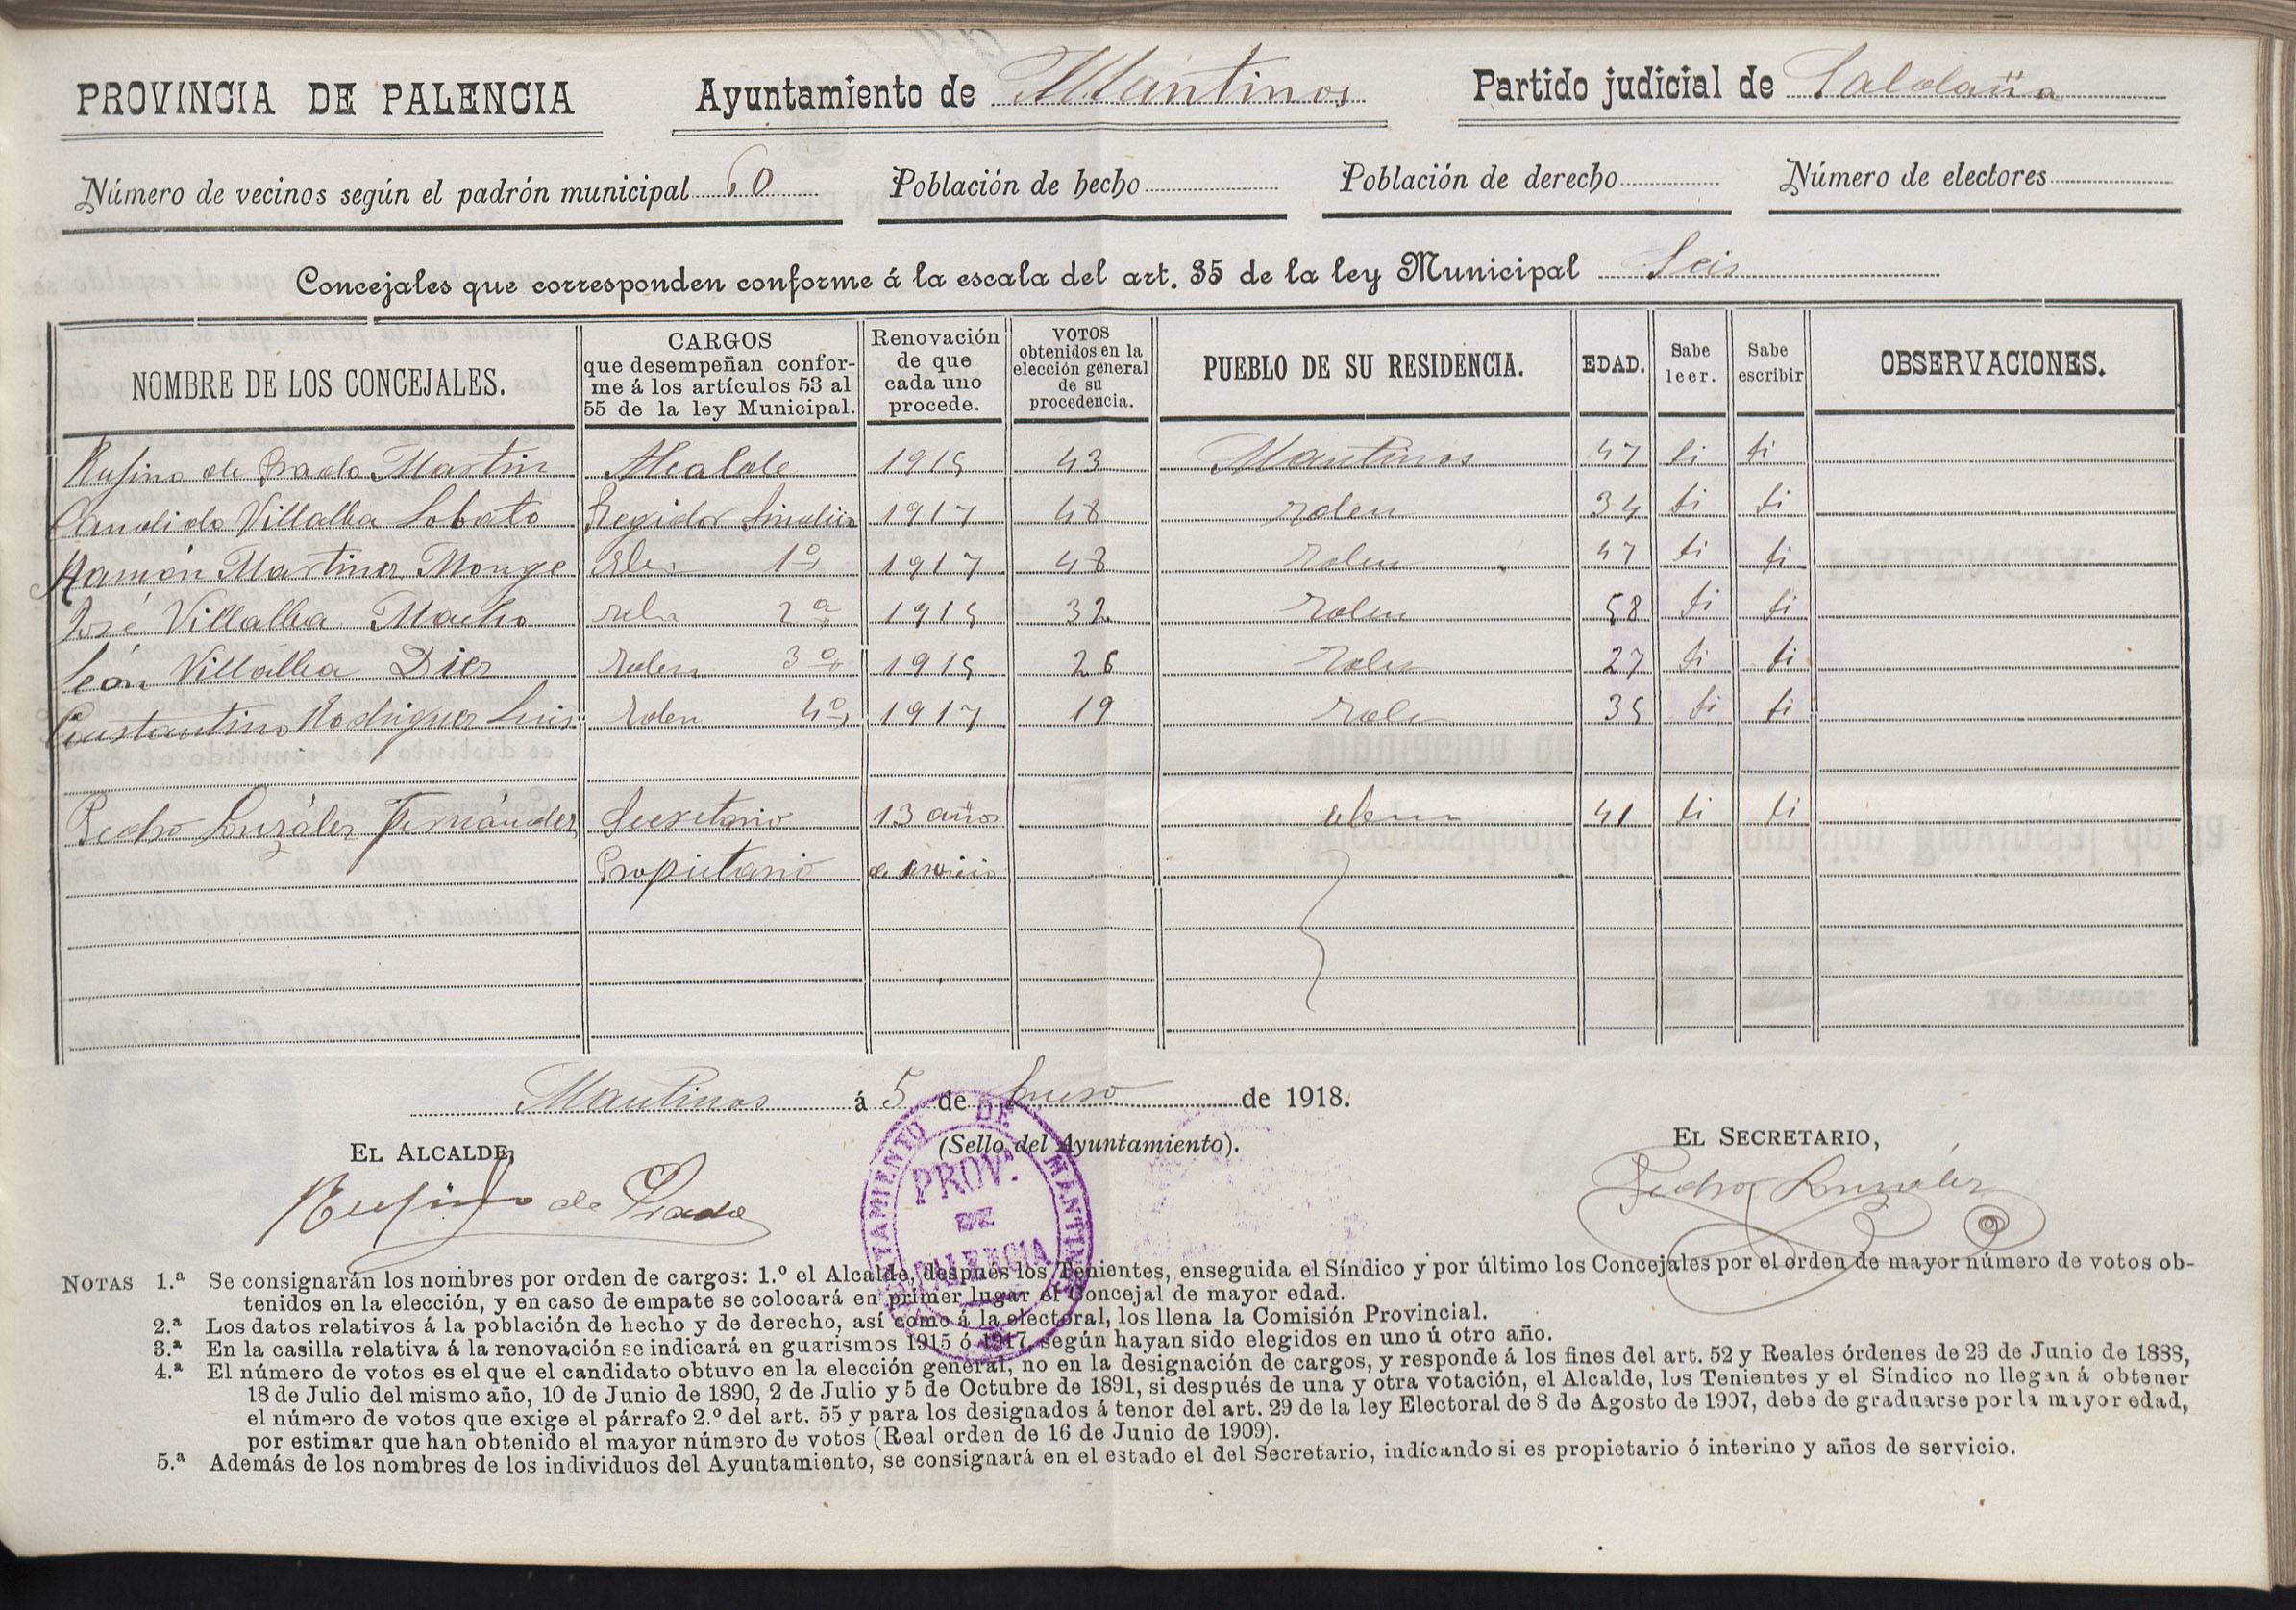 PROVINCIA DE PALENCIA Ayuntamiento de Mantinos Partido judicial de Saldaña
Número de vecinos según el padrón municipal 60 Población de hecho Población de derecho Número de electores
Concejales que corresponden conforme á la escala del art. 35 de la ley Municipal Seis
NOMBRE DE LOS CONCEJALES. CARGOS que desempeñan conforme á los artículos 53 al 55 de la ley Municipal. Renovación de que cada uno procede. VOTOS obtenidos en la elección general de su procedencia. PUEBLO DE SU RESIDENCIA. EDAD. Sabe leer. Sabe escribir OBSERVACIONES.
Rufino de Prado Martin Alcalde 1915 43 Mantinos 47 si si
Candido Villalba Lobato Regidor Sindico 1917 48 Iden 34 si si
Ramón Martinez Monge Iden 1º 1917 48 Iden 47 si si
José Villalba Macho Iden 2º 1915 32 Iden 58 si si
León Villalba Diez Iden 3º 1915 26 Iden 27 si si
Constantino Rodriguez Luis Iden 4º 1917 19 Iden 35 si si
Pedro González Fernández Secretario 13 años Iden 41 si si
Propietario de servicio
Mantinos á 5 de Enero de 1918.
(Sello del Ayuntamiento).
EL ALCALDE, EL SECRETARIO,
Rufino de Prado Pedro González
AYUNTAMIENTO DE MANTINOS
PROV.ª
DE
PALENCIA
NOTAS 1.ª Se consignarán los nombres por orden de cargos: 1.º el Alcalde, después los Tenientes, enseguida el Síndico y por último los Concejales por el orden de mayor número de votos ob-
tenidos en la elección, y en caso de empate se colocará en primer lugar el Concejal de mayor edad.
2.ª Los datos relativos á la población de hecho y de derecho, así como á la electoral, los llena la Comisión Provincial.
3.ª En la casilla relativa á la renovación se indicará en guarismos 1915 ó 1917 según hayan sido elegidos en uno ú otro año.
4.ª El número de votos es el que el candidato obtuvo en la elección general, no en la designación de cargos, y responde á los fines del art. 52 y Reales órdenes de 23 de Junio de 1888,
18 de Julio del mismo año, 10 de Junio de 1890, 2 de Julio y 5 de Octubre de 1891, si después de una y otra votación, el Alcalde, los Tenientes y el Síndico no llegan á obtener
el número de votos que exige el párrafo 2.º del art. 55 y para los designados á tenor del art. 29 de la ley Electoral de 8 de Agosto de 1907, debe de graduarse por la mayor edad,
por estimar que han obtenido el mayor número de votos (Real orden de 16 de Junio de 1909).
5.ª Además de los nombres de los individuos del Ayuntamiento, se consignará en el estado el del Secretario, indicando si es propietario ó interino y años de servicio.